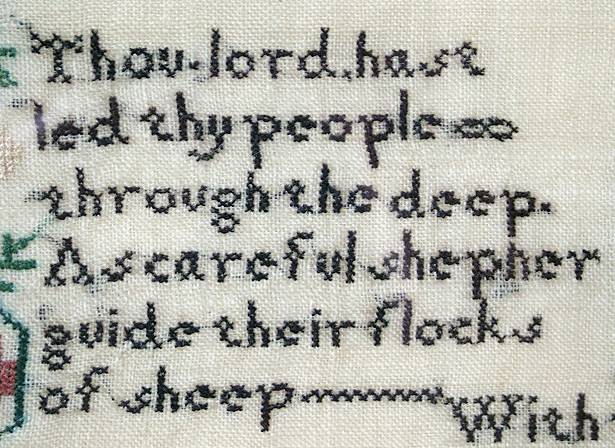 Thou lord hast
led thy people
through the deep.
As careful shepher
guide their flocks
of sheep
With